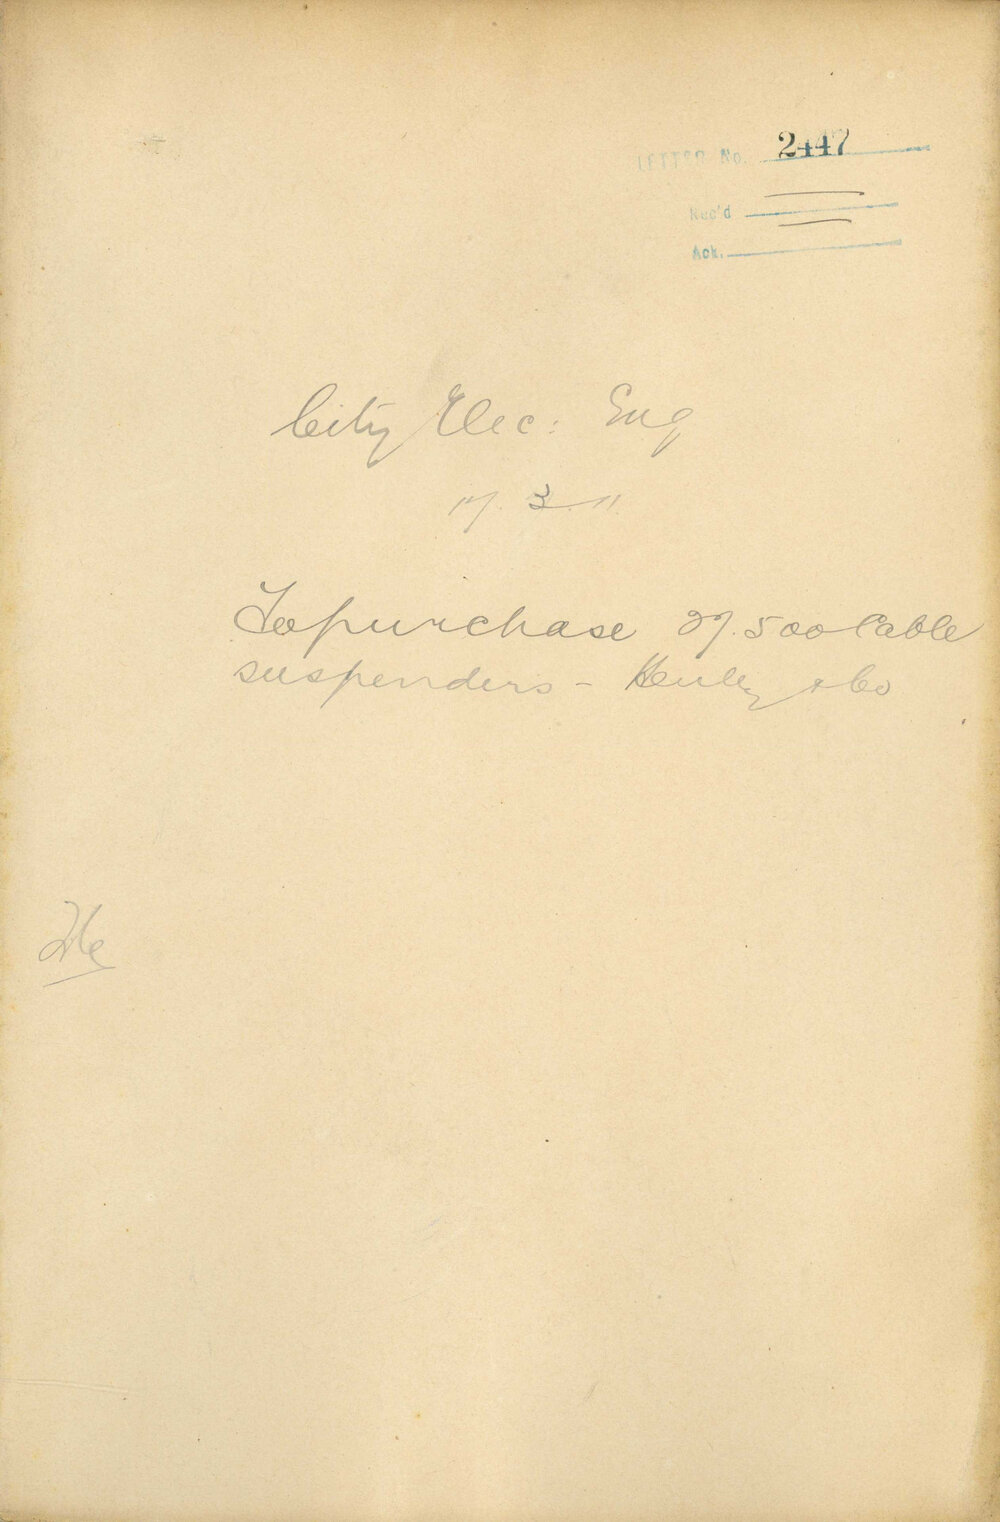 LETTER No. 2447
Rec'd
Ack.
City Elec: Eng
17. 3. 11.
To purchase 27.500 Cable
suspenders - Henley & Co